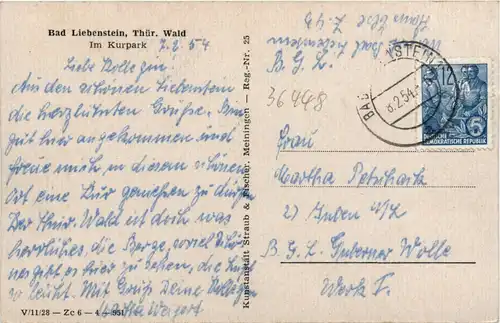 Bad Liebenstein, Thür. Wald
Im Kurpark
7.2.54
Liebe Kollegin!
Aus dem schönen Liebenstein
die herzlichsten Grüße. Bin
gut hier angekommen und
freue mich in diesem schönen
Ort eine Kur genießen zu dürfen
Der Thür. Wald ist doch was
herrliches, die Berge, soviel Schö-
nes gibt es hier zu sehen, die Luft
so leicht. Mit Gruß Deine Kollegin
V/11/28 — Zc 6 — 4 — 951
Kunstanstalt Straub & Fischer, Meiningen — Reg.-Nr. 25
Bad Liebenstein
B. G. L.
36448
BAD LIEBENSTEIN
8.2.54
12
5
DEUTSCHE
DEMOKRATISCHE REPUBLIK
Frau
Martha
B. G. L. Gubener Wolle
Werk I.